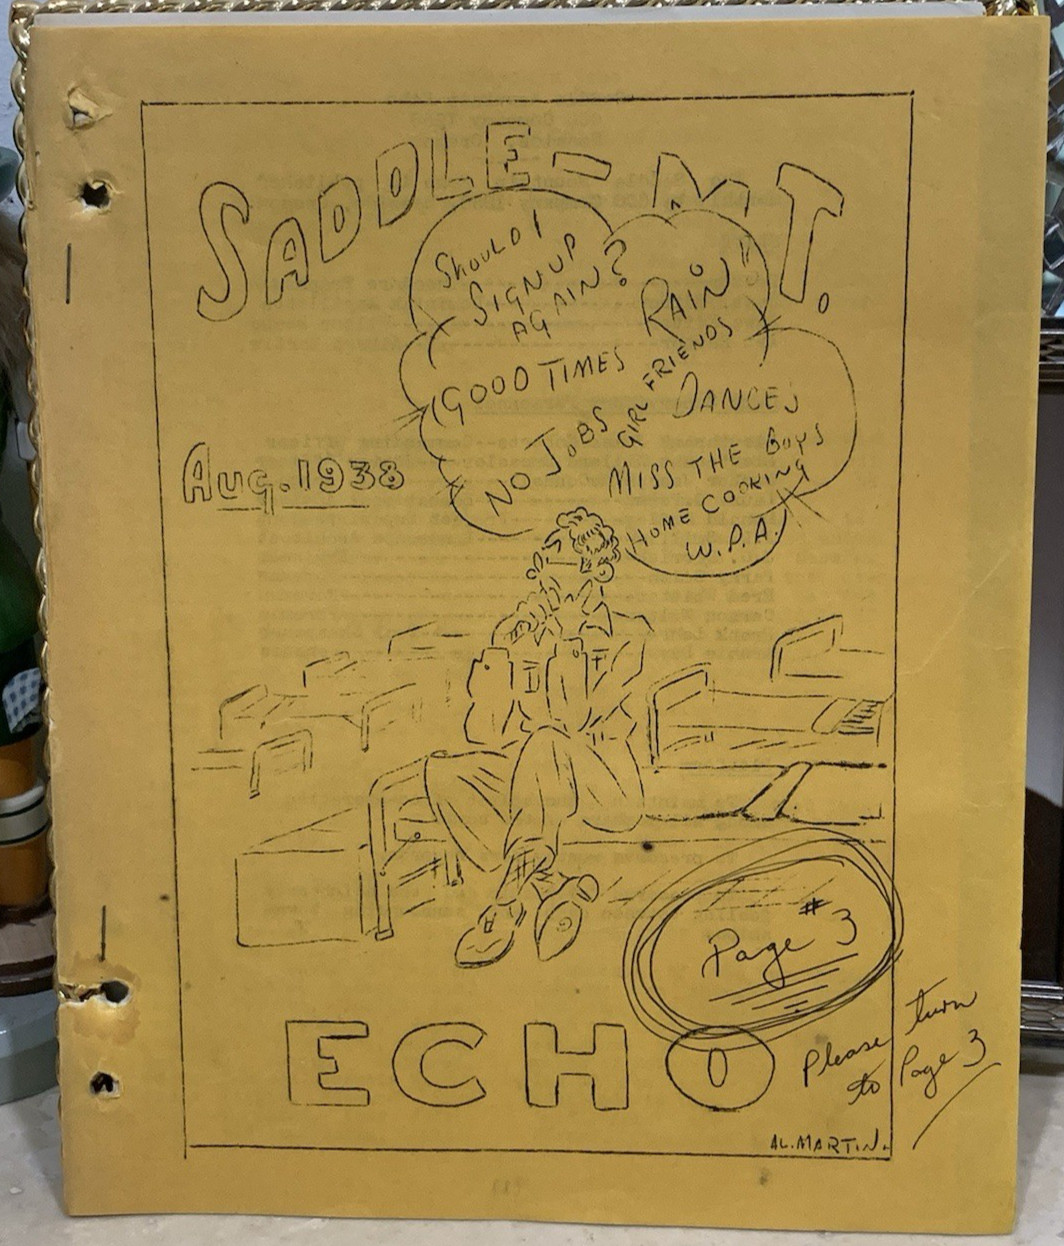 SADDLE-MT.
SHOULD I
SIGN UP
AGAIN?
RAIN!!
GOOD TIMES
GIRL FRIENDS
NO JOBS
DANCES
MISS THE BOYS
HOME COOKING
W.P.A.
AUG. 1938
Page #3
ECHO
Please turn
to Page 3
AL. MARTIN.